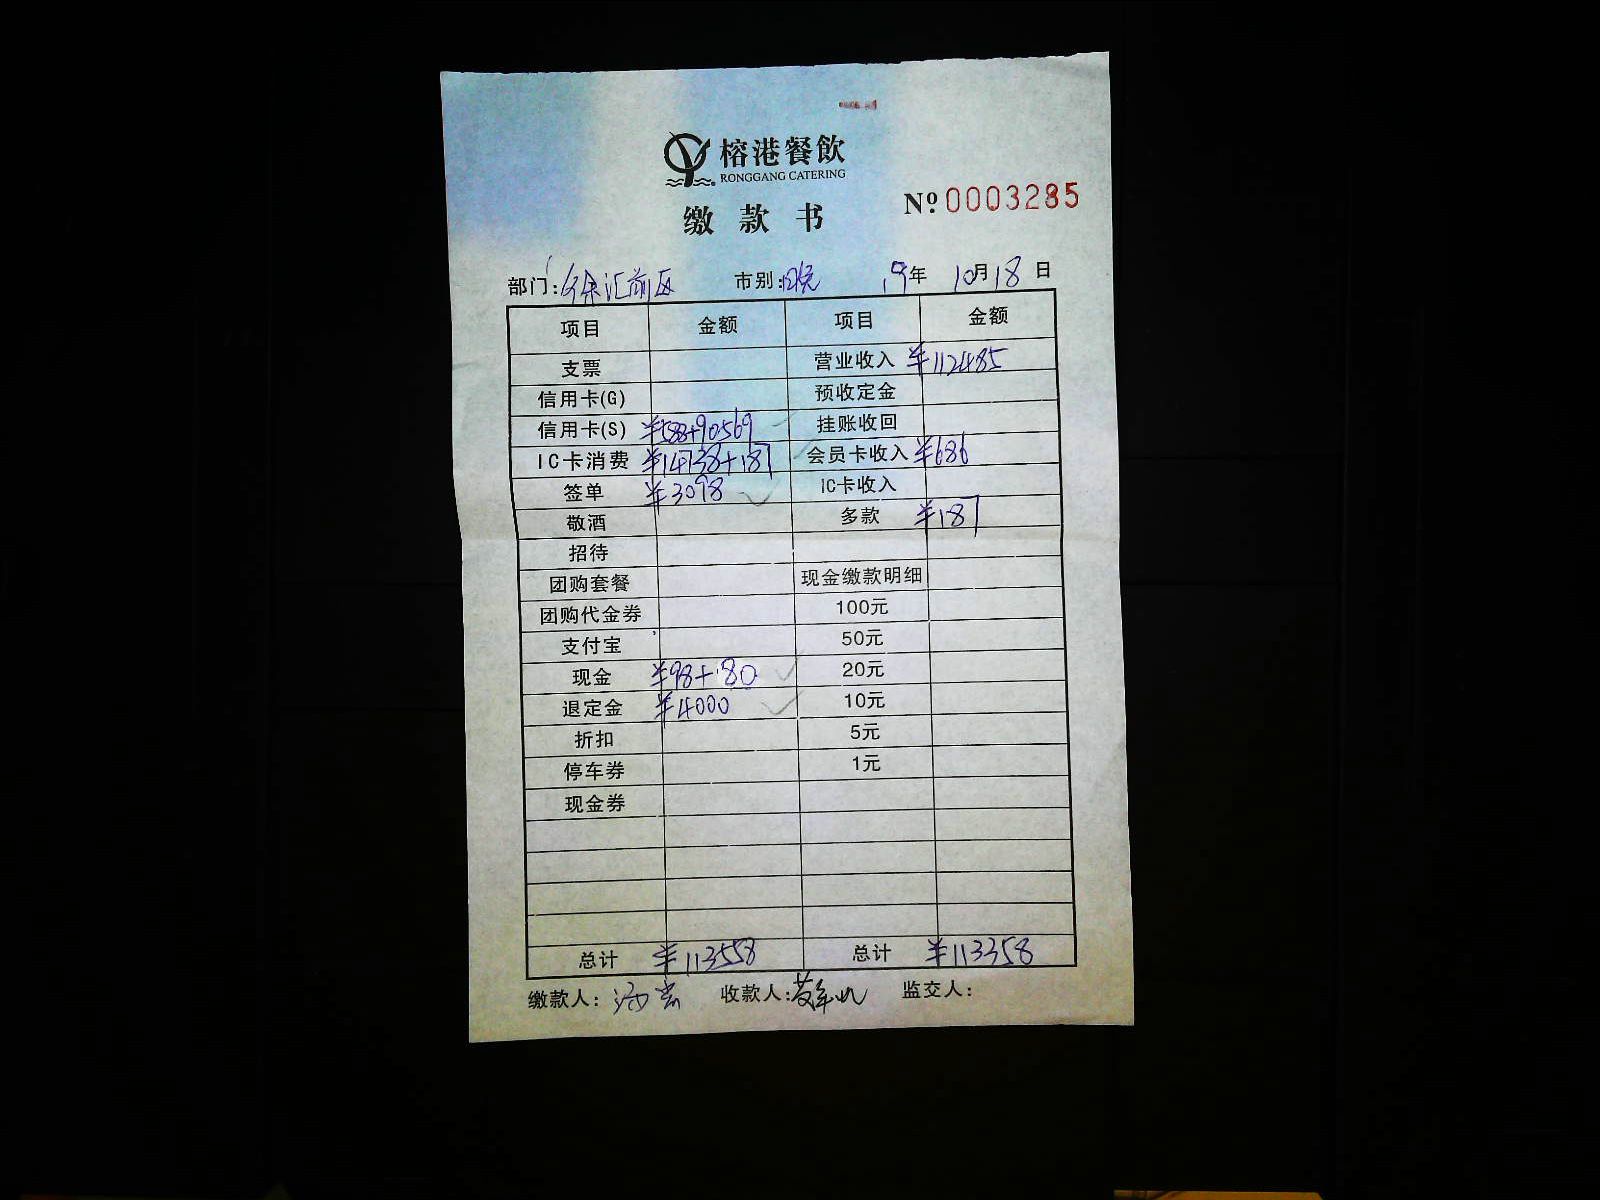 榕港餐飲
RONGGANG CATERING
缴款书
Nº.0003285
部门:徐汇前区 市别:晚 19年 10月18日
项目 金额 项目 金额
支票 营业收入 ¥112485
信用卡(G) 预收定金
信用卡(S) ¥588+90569 挂账收回
IC卡消费 ¥14738+187 会员卡收入 ¥686
签单 ¥3098 IC卡收入
敬酒 多款 ¥187
招待
团购套餐 现金缴款明细
团购代金券 100元
支付宝 50元
现金 ¥98+80 20元
退定金 ¥4000 10元
折扣 5元
停车券 1元
现金券
总计 ¥113558 总计 ¥113358
缴款人: 收款人: 监交人: